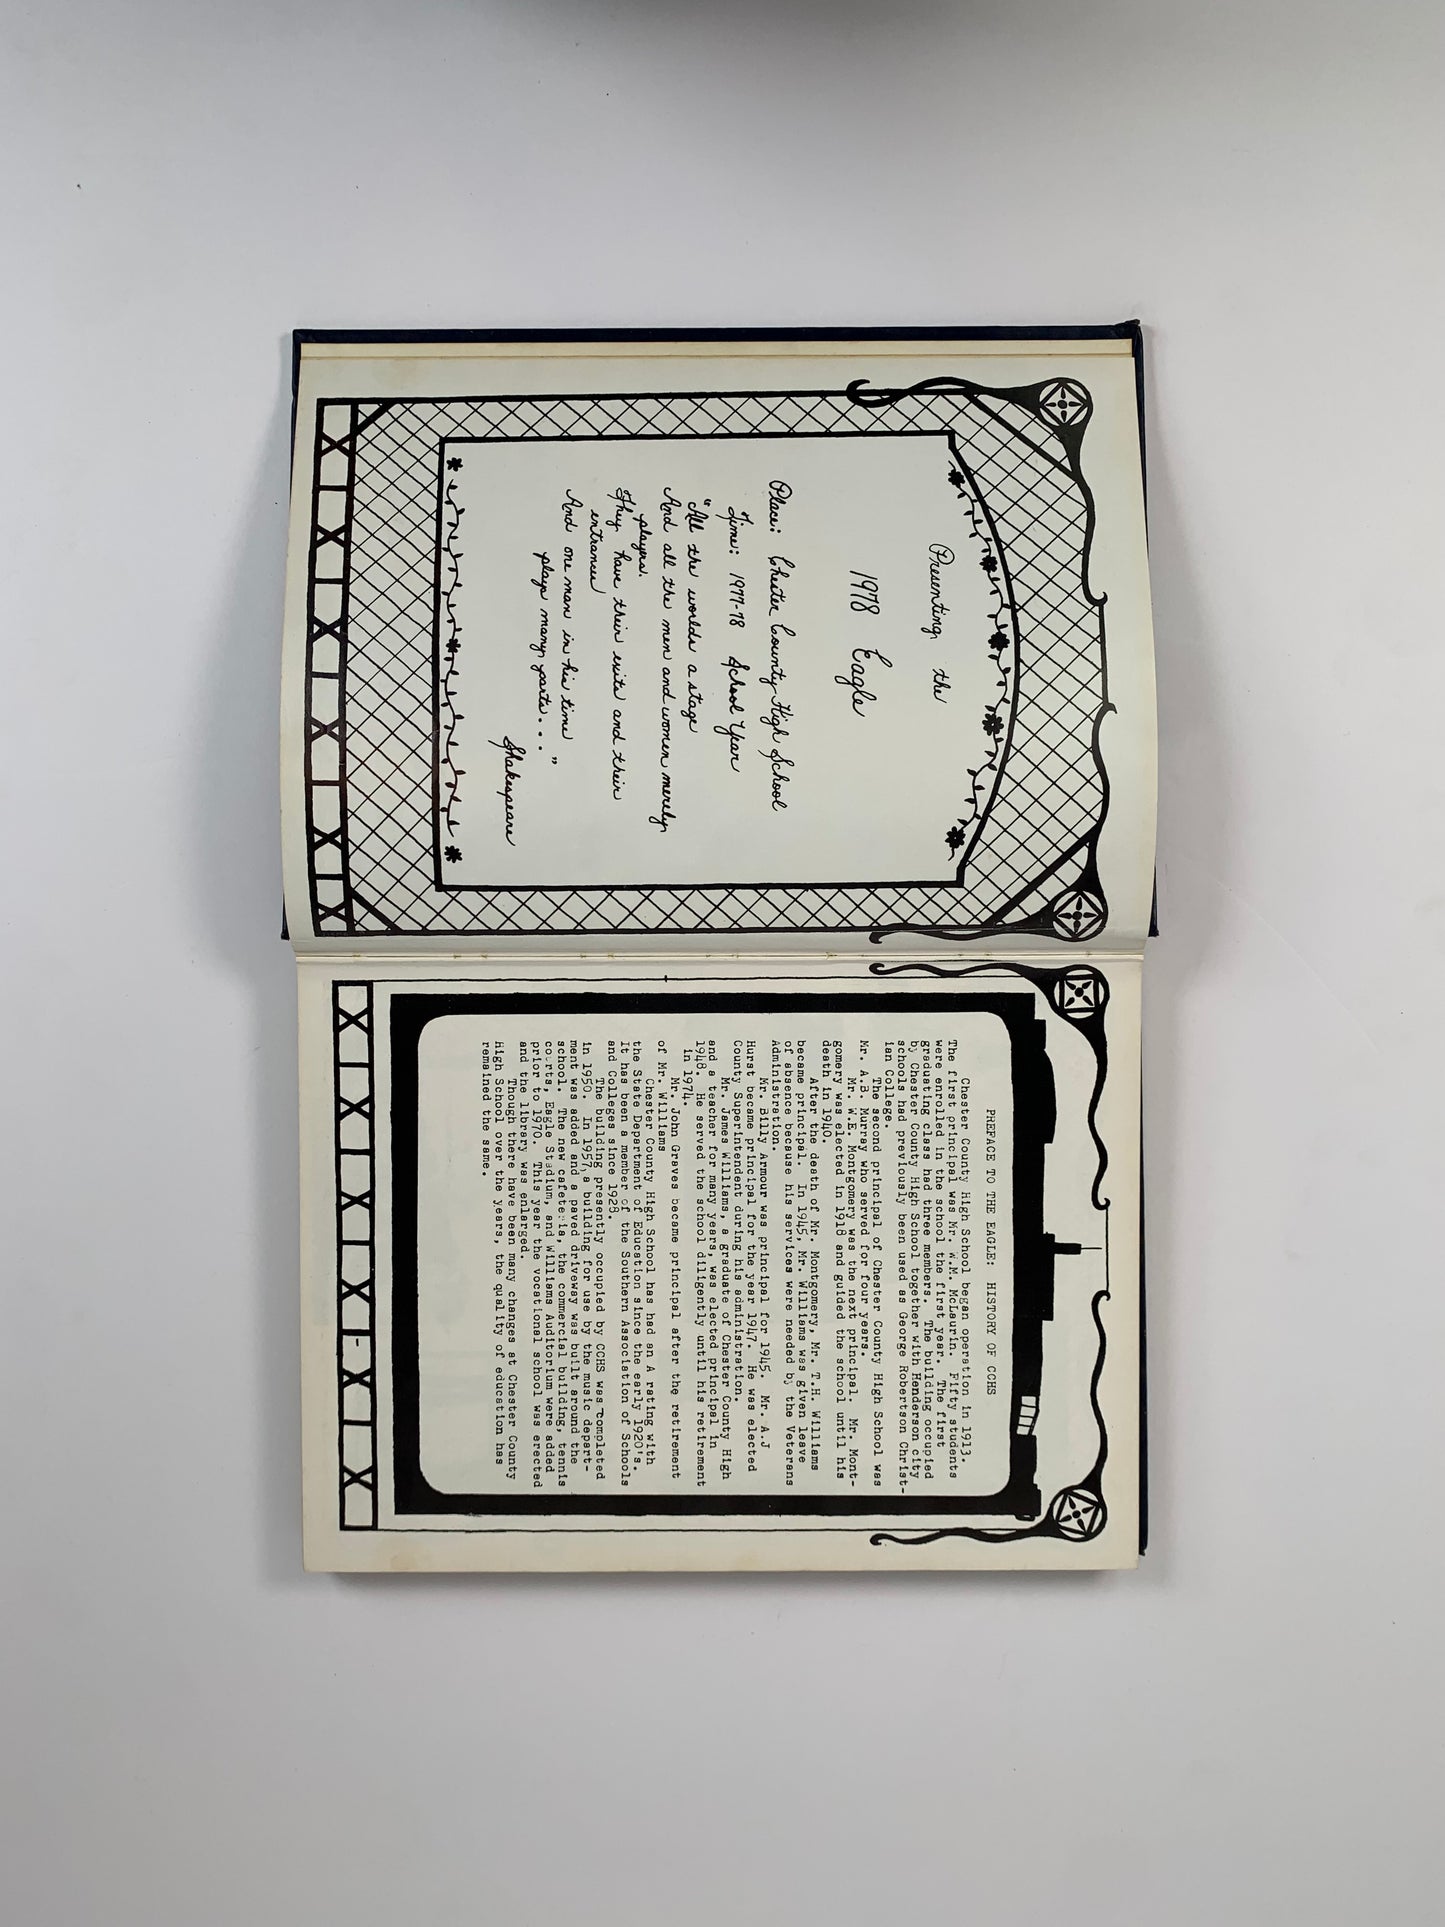 Presenting the
1978 Eagle
Place: Chester County High School
Time: 1977-78 School Year
"All the worlds a stage
And all the men and women merely
players.
They have their exits and their
entrances
And one man in his time
plays many parts... "
Shakespeare
PREFACE TO THE EAGLE: HISTORY OF CCHS
Chester County High School began operation in 1913.
The first principal was Mr. W.M. McLaurin. Fifty students
were enrolled in the school the first year. The first
graduating class had three members. The building occupied
by Chester County High School together with Henderson city
schools had previously been used as George Robertson Christ-
ian College.
The second principal of Chester County High School was
Mr. A.B. Murray who served for four years.
Mr. W.E. Montgomery was the next principal. Mr. Mont-
gomery was elected in 1918 and guided the school until his
death in 1940.
After the death of Mr. Montgomery, Mr. T.H. Williams
became principal. In 1945, Mr. Williams was given leave
of absence because his services were needed by the Veterans
Administration.
Mr. Billy Armour was principal for 1945. Mr. A.J
Hurst became principal for the year 1947. He was elected
County Superintendent during his administration.
Mr. James Williams, a graduate of Chester County High
and a teacher for many years, was elected principal in
1948. He served the school diligently until his retirement
in 1974.
Mr. John Graves became principal after the retirement
of Mr. Williams
Chester County High School has had an A rating with
the State Department of Education since the early 1920's.
It has been a member of the Southern Association of Schools
and Colleges since 1928.
The building presently occupied by CCHS was completed
in 1950. In 1957, a building for use by the music depart-
ment was added and a paved driveway was built around the
school. The new cafeteria, the commercial building, tennis
courts, Eagle Stadium, and Williams Auditorium were added
prior to 1970. This year the vocational school was erected
and the library was enlarged.
Though there have been many changes at Chester County
High School over the years, the quality of education has
remained the same.